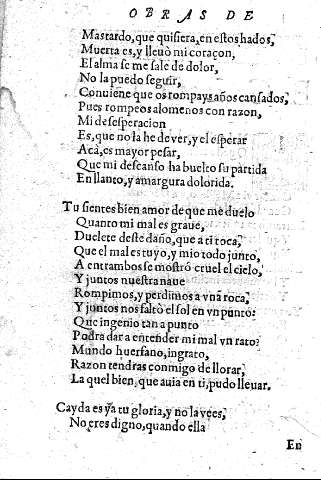 OBRAS DE
Mastardo, que quisiera, en estos hados,
Muerta es, y lleuò mi coraçon,
El alma se me sale de dolor,
No la puedo seguir,
Conuiene que os rompays años cansados,
Pues rompeos alomenos con razon,
Mi desesperacion
Es, que no la he de ver, y el esperar
Acà, es mayor pesar,
Que mi descanso ha buelto su partida
En llanto, y amargura dolorida.
Tu sientes bien amor de que me duelo
Quanto mi mal es graue,
Duelete deste daño, que a ti toca,
Que el mal es tuyo, y mio todo junto,
A entrambos se mostrò cruel el cielo,
Y juntos nuestra naue
Rompimos, y perdimos a vna roca,
Y juntos nos faltò el sol en vn punto:
Que ingenio tan a punto
Podra dar a entender mi mal vn rato?
Mundo huerfano, ingrato,
Razon tendras conmigo de llorar,
La quel bien, que auia en ti, pudo lleuar.
Cayda es ya tu gloria, y no la vees,
No eres digno, quando ella
En